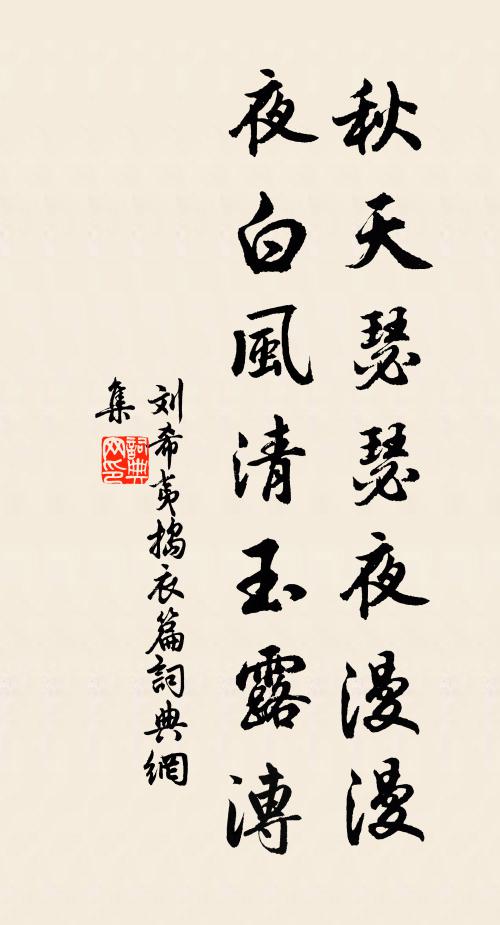 秋天瑟瑟夜漫漫
夜白風清玉露漙
刘希夷搗衣篇詞典網
集
詞典
网印